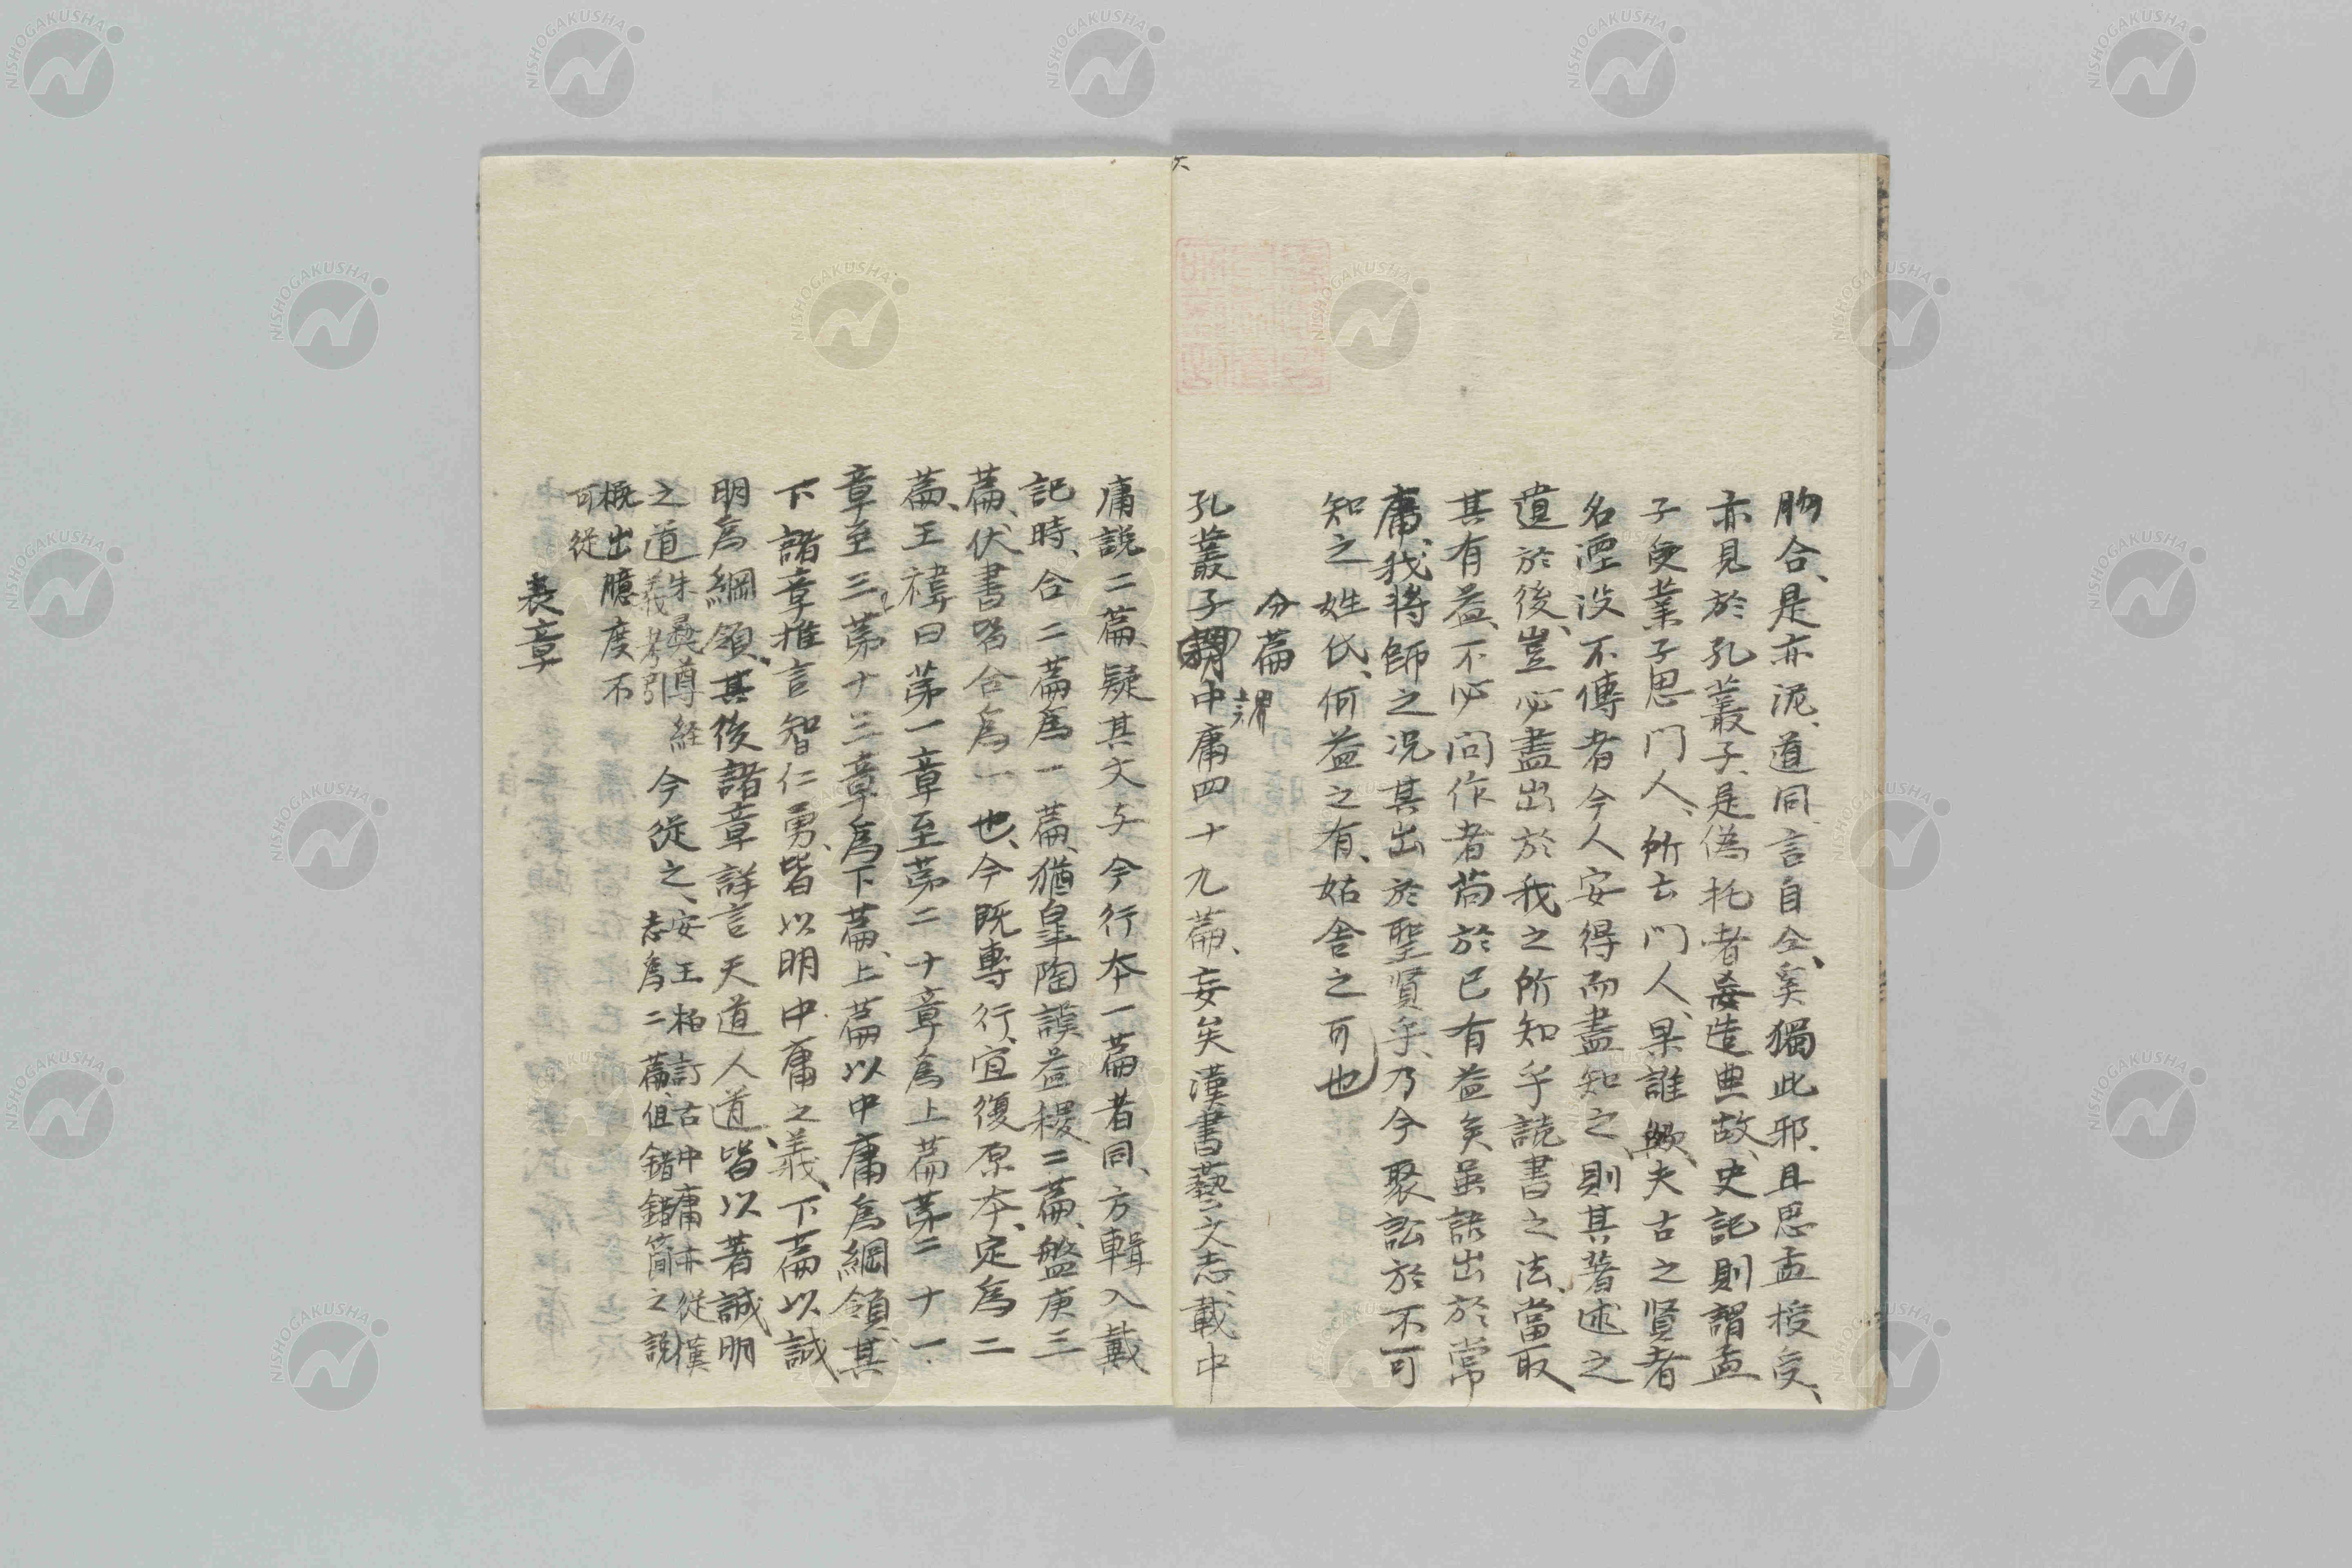 胗合、是亦泥、道同言自合、奚獨此邪、且思孟授受、
亦見於孔叢子、是偽托者妄造典故、史記則謂孟
子受業子思門人、所云門人、果誰歟、夫古之賢者
名湮没不傳者今人安得而盡知之、則其著述之
遺於後、豈必盡出於我之所知乎読書之法、當取
其有益、不必問作者苟於己有益矣虽語出於常
庸、我将師之况其出於聖賢乎、乃今聚訟於不可
知之姓氏、何益之有、姑舍之可也
分篇
孔叢子謂中庸四十九篇、妄矣漢書藝文志、載中
庸説二篇、疑其文与今行本一篇者同、方輯入戴
記時、合二篇為一篇、猶皐陶謨益稷二篇、盤庚三
篇、伏書皆合為一也、今既專行、宜復原本、定為二
篇、王禕曰第一章至第二十章為上篇第二十一
章至三第十三章為下篇、上篇以中庸為綱領、其
下諸章推言智仁勇、皆以明中庸之義、下篇以誠
明為綱領、其後諸章詳言天道人道、皆以著誠明
之道朱彝尊経義考引今従之、安王柏訂古中庸亦従漢志為二篇、但錯錯簡之説
概出臆度不
可従
表章